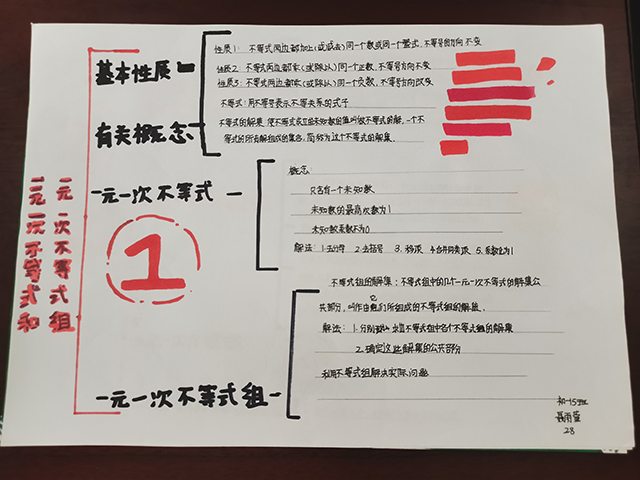 一元一次不等式和
一元一次不等式组
基本性质
性质1: 不等式两边都加上(或减去)同一个数或同一个整式,不等号的方向不变
性质2: 不等式两边都乘(或除以)同一个正数,不等号方向不变
性质3: 不等式两边都乘(或除以)同一个负数,不等号方向改变
有关概念
不等式: 用不等号表示不等关系的式子
不等式的解集: 使不等式成立的未知数的值叫做不等式的解.一个不
等式的所有解组成的集合,简称为这个不等式的解集.
一元一次不等式
概念:
只含有一个未知数
未知数的最高次数为1
未知数系数不为0
解法 1.去分母 2.去括号 3.移项 4.合并同类项 5.系数化为1
1
一元一次不等式组
不等式组的解集: 不等式组中的几个一元一次不等式的解集公
共部分,叫作由它们所组成的不等式组的解集.
解法: 1.分别求出不等式组中各个不等式组的解集
2.确定这些解集的公共部分
利用不等式组解决实际问题
初一15班
28